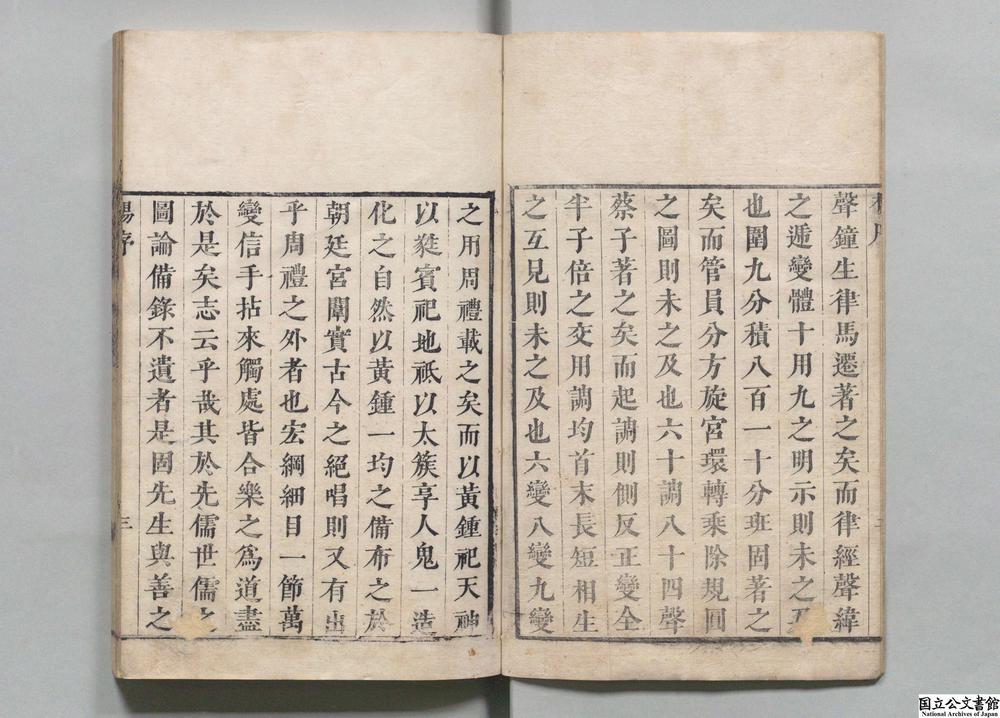 聲鐘生律馬遷著之矣而律經聲緯
之遞變體十用九之明示則未之及
也圍九分積八百一十分班固著之
矣而管員分方旋宮環轉乘除規圓
之圖則未之及也六十調八十四聲
蔡子著之矣而起調則側反正變全
半子倍之交用調均首末長短相生
之互見則未之及也六變八變九變
之用周禮載之矣而以黃鍾祀天神
以蕤賓祀地祇以太簇享人鬼一造
化之自然以黃鍾一均之備布之於
朝廷宮闈實古今之絕唱則又有出
乎周禮之外者也宏綱細目一節萬
變信手拈來觸處皆合樂之爲道盡
於是矣志云乎哉其於先儒世儒之
圖論備錄不遺者是固先生與善之
楊序
三
国立公文書館
National Archives of Japan